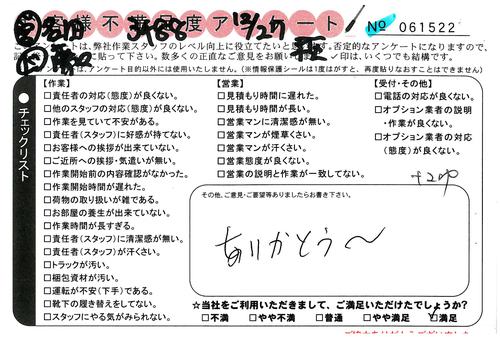 お客様不満足度アンケート
5488 12/27
№ 061522
このアンケートは、弊社作業スタッフのレベル向上に役立てたいと思います。否定的なアンケートになりますので、
✓印は、いくつでも結構です。
は、アンケート目的以外には使用いたしません。(※情報保護シールは1度はがすと、再度貼りなおすことはできません)
チェックリスト
【作業】
□責任者の対応(態度)が良くない。
□他のスタッフの対応(態度)が良くない。
□作業を見ていて不安がある。
□責任者(スタッフ)に好感が持てない。
□お客様への挨拶が出来ていない。
□ご近所への挨拶・気遣いが無い。
□作業開始前の内容確認がなかった。
□作業開始時間が遅れた。
□荷物の取り扱いが雑である。
□お部屋の養生が出来ていない。
□作業時間が長すぎる。
□責任者(スタッフ)に清潔感が無い。
□責任者(スタッフ)が汗くさい。
□トラックが汚い。
□梱包資材が汚い。
□運転が不安(下手)である。
□靴下の履き替えをしてない。
□スタッフにやる気がみられない。
【営業】
□見積もり時間に遅れた。
□見積もり時間が長い。
□営業マンに清潔感が無い。
□営業マンが煙草くさい。
□営業マンが汗くさい。
□営業態度が良くない。
□営業の説明と作業が一致してない。
【受付・その他】
□電話の対応が良くない。
□オプション業者の説明
・作業が良くない。
□オプション業者の対応
(態度)が良くない。
その他、ご意見・ご要望等ありましたらお書き下さい。
ありがとう〜
☆当社をご利用いただきまして、ご満足いただけたでしょうか?
□不満 □やや不満 □普通 □やや満足 □満足